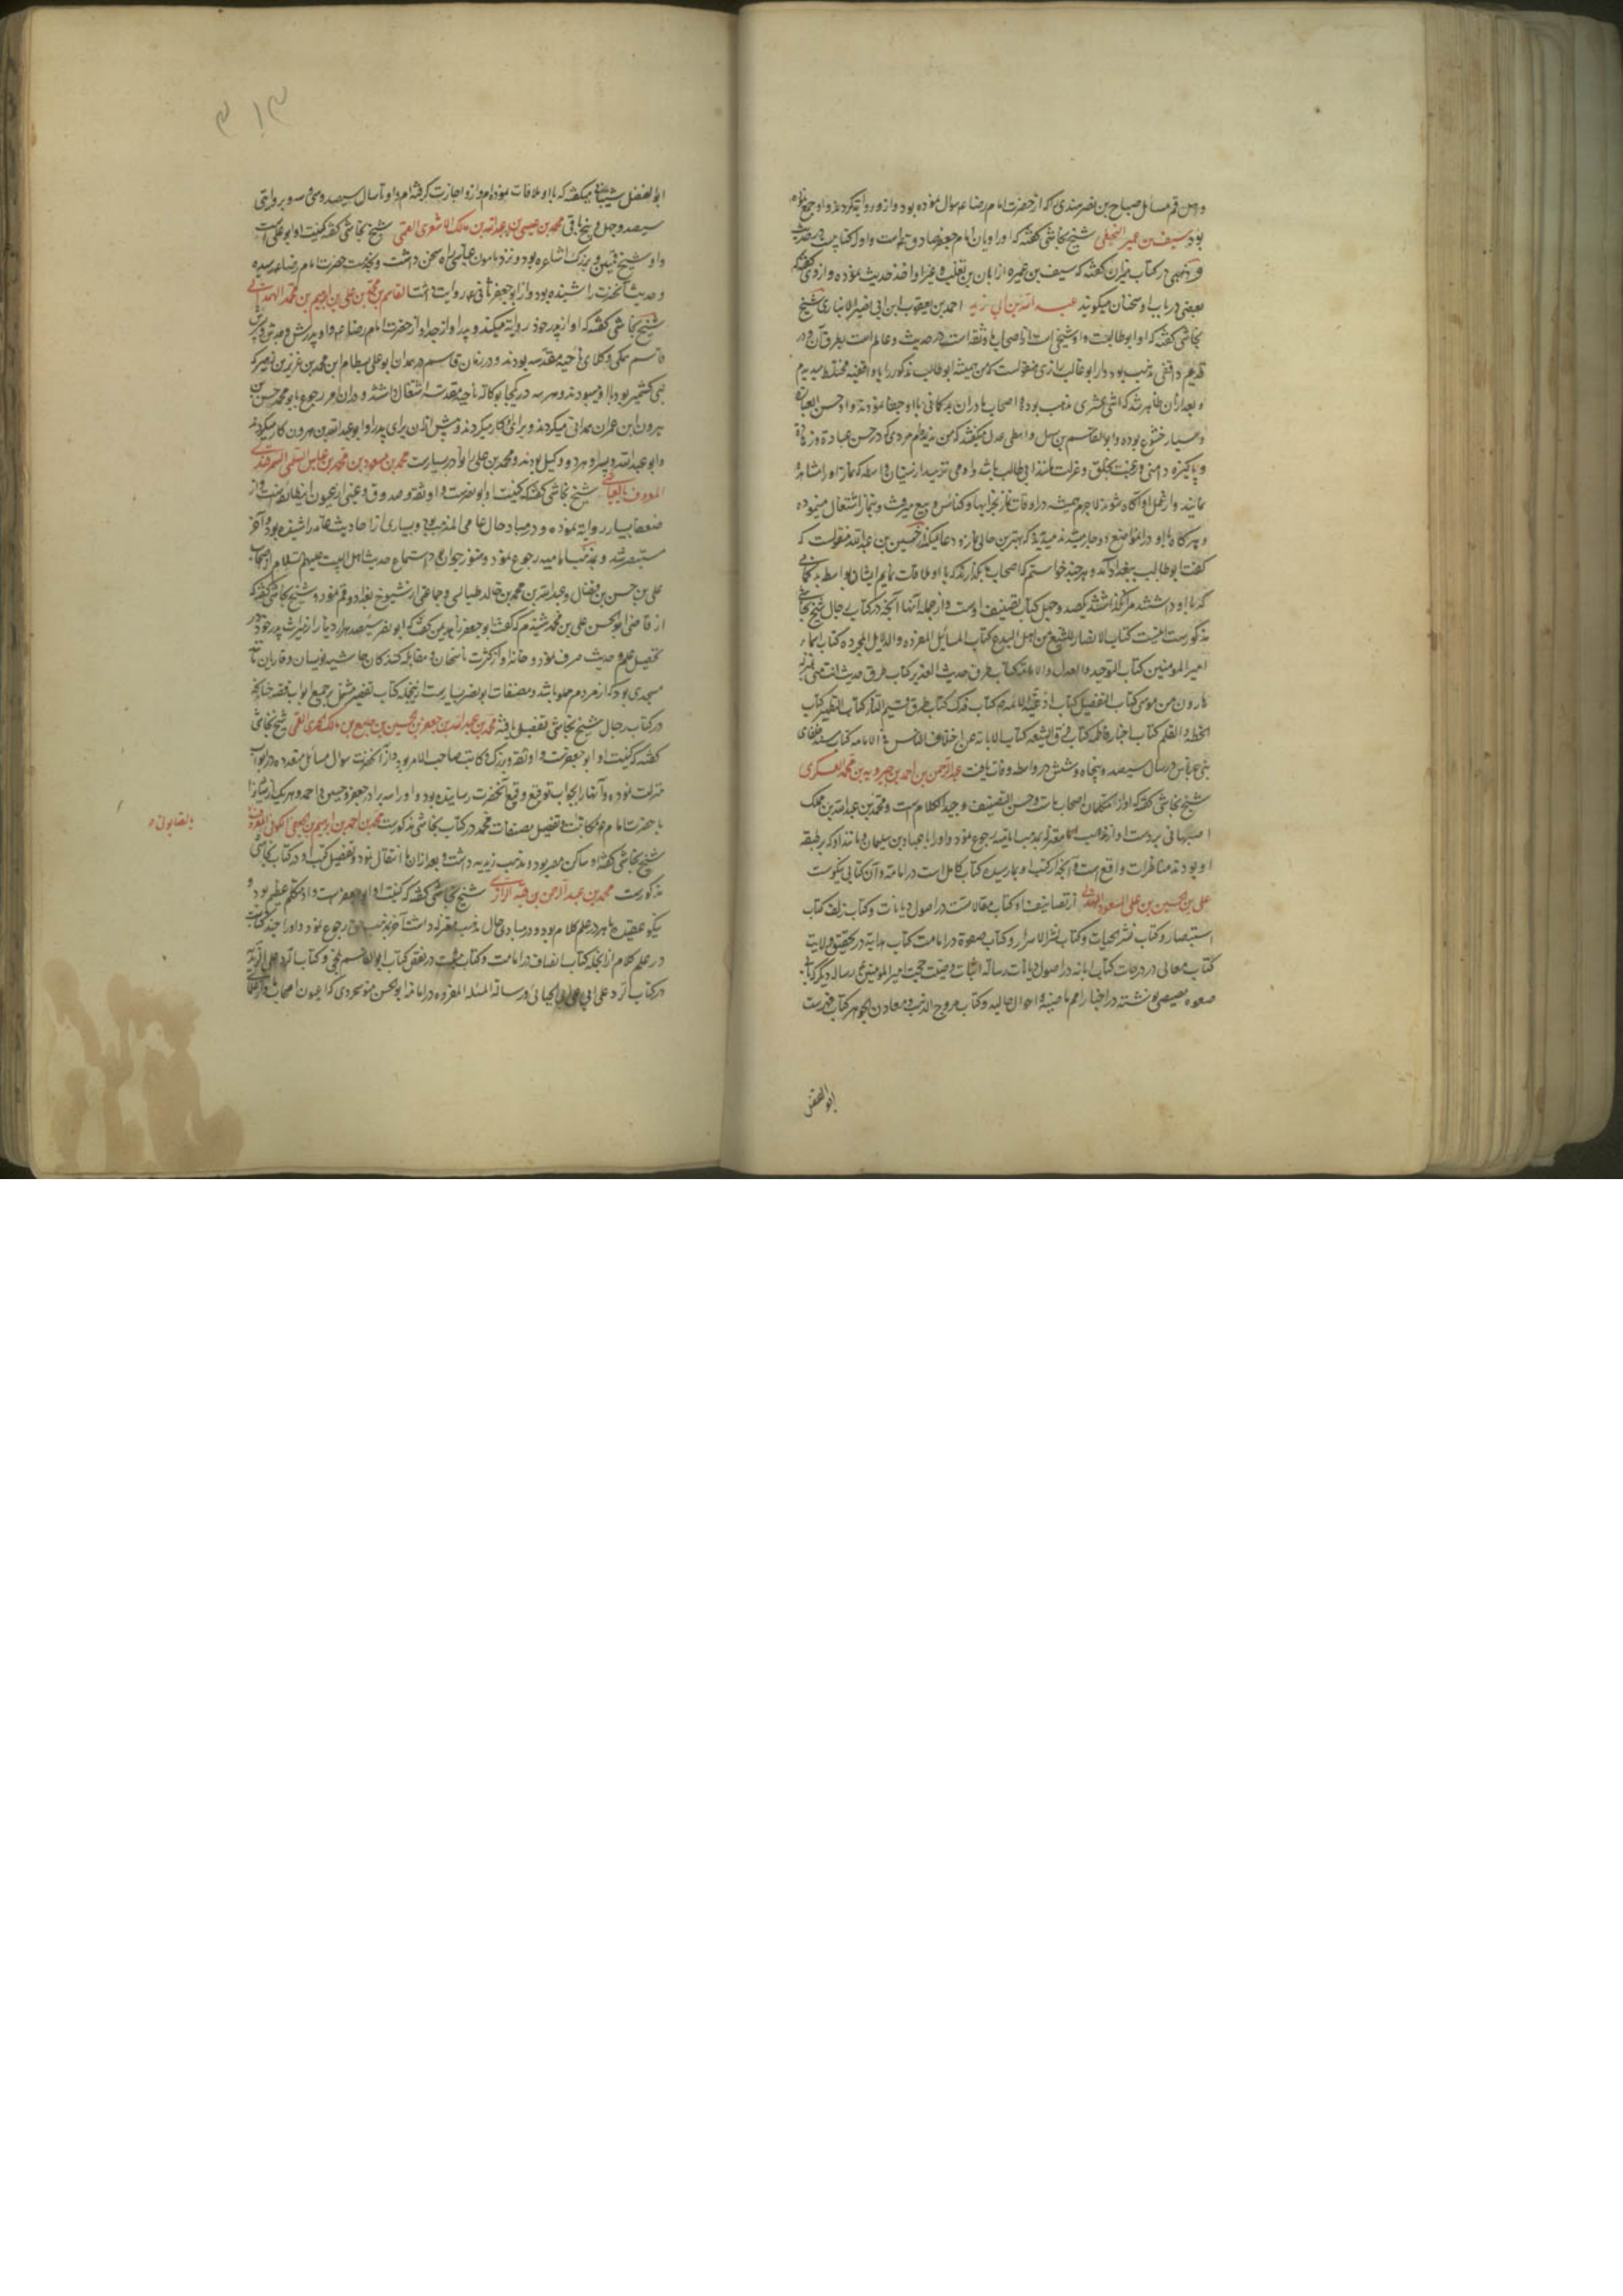 و چون قم مسائل صباح بن نصر هندی که از حضرت امام رضا ع سوال نموده بود و از و روایة کرده‌اند و او جمع نموده
بود سیف بن عمیر النخعی شیخ نجاشی گفته که او راویان امام جعفر صادق است و او را کتابیست در حدیث
و ذهبی در کتاب میزان گفته که سیف بن عمیره از ابان بن تغلب و غیر او اخذ حدیث نموده و ازدی گفته که
بعضی در باب او سخنان میگویند عبد الله بن ابی زید احمد بن یعقوب ابن ابی نصیر الانباری شیخ
نجاشی گفته که او ابو طالبست و او شیخی است از اصحاب ما و ثقه است در حدیث و عالم است بطرق آن و در
قدیم واقفی مذهب بود و از ابو غالب رازی منقولست که من همیشه ابو طالب مذکور را با واقفیه مختلط میدیدم
و بعد از آن ظاهر شد که اثنی عشری مذهب بوده و اصحاب ما در ان بد کمانی با او جفا نمودند و او حسن العباده
و بسیار خشوع بوده و ابو القاسم بن سهل واسطی عدل میگفته که من ندیدم مردی که در حسن عبادة و زهادة
و پاکیزه دامنی و رغبت بخلق و عزلت مانند ابی طالب باشد و او می ترسید از نیسان واسط که نماز او را مشاهده
نمایند و از عمل او آگاه شوند لاجرم همیشه در اوقات نماز بخرابها و کنائس و بیع میرفت و بنماز اشتغال مینموده
و هر کاه با او در المواضع دوچار میشدند میدیدند که بهترین حالی نماز و دعا میکند از حسین بن عبدالله منقولست که
گفت ابو طالب ببغداد آمد و هر چند خواستم که اصحاب ما بگذارند که با او ملاقات نمایم ایشان بواسطه بد کمانی
که با او داشتند مرا نگذاشتند یکصد و چهل کتاب تصنیف اوست و از جمله آنها آنچه در کتاب رجال شیخ نجاشی
مذکورست اینست کتاب الانتصار للشیع من اهل البدع کتاب المسائل المفرده و الدلایل المجرده کتاب اسماء
امیر المومنین کتاب التوحید و العدل و الامامه کتاب طرق حدیث الغدیر کتاب طرق حدیث انت منی بمنزله
هارون من موسی کتاب التفضیل کتاب ادعیة الائمه کتاب فدک کتاب طرق قسیم النار کتاب التطهیر کتاب
الخط و القلم کتاب اخبار فاطمه کتاب فرق الشیعه کتاب الابانه عن اختلاف الناس فی الامامه کتاب مسند خلفای
بنی عباس در سال سیصد و پنجاه و شش در واسط وفات یافت عبد الرحمن بن احمد بن جبرویه بن محمد العسکری
شیخ نجاشی گفته که او از متکلمان اصحاب ماست و حسن التصنیف و جید الکلام است و محمد بن عبدالله بن مملک
اصبهانی بر دست او از مذهب معتزله بمذهب امامیه رجوع نمود و او را با عباد بن سلیمان و مانند او که بر طبقه
او بودند مناظرات واقع است و آنچه از کتب او بما رسیده کتاب کامل است در امامة و آن کتابی نیکوست
علی بن حسین بن علی المسعود الهذلی از تصانیف او کتاب مقالاتست در اصول دیانات و کتاب زلف کتاب
استبصار و کتاب نشر الحیات و کتاب نشر الاسرار و کتاب صفوة در امامت کتاب هدایة در تحقیق ولایت
کتاب معالی در درجات کتاب ابانه در اصول دیانات رساله اثبات وصیت حجیت امیر المومنین رساله دیگر که بابی
صفوه مصیصی نوشته در اخبار امم ماضیه و احوال حالیه و کتاب مروج الذهب و معادن الجوهر کتاب فهرست
ابو الفضل
۳۱۳
ابو الفضل شیبانی میگفته که با او ملاقات نموده‌ام و از و اجازت گرفته‌ام و او تا سال سیصد و سی و سه و بروایتی
سیصد و چهل و پنج باقی محمد بن عیسی بن عبدالله بن مالک الاشعری القمی شیخ نجاشی گفته کنیت او ابو علی است
و او شیخ قمیین و بزرک اشاعره بود و نزد مامون عباسی راه سخن داشت و بخدمت حضرت امام رضا ع رسیده
و حدیث آنحضرت را شنیده بود و از ابو جعفر ثانی ع روایت داشت القاسم بن محمد بن علی بن ابراهیم بن محمد الهمدانی
شیخ نجاشی گفته که او از پدر خود روایة میکند و پدر او از جد او از حضرت امام رضا ع و او و پدرش و جدش و پسرش
قاسم همکی وکلای ناحیه مقدسه بودند و در زمان قاسم در همدان ابو علی بسطام ابن محمد بن عزیز بن نصیر که
و ابو عبدالله و پسر او هر دو وکیل بودند و محمد بن علی را نوادر بسیارست محمد بن مسعود بن محمد بن عیاش السلمی السمرقندی
المعروف بالعیاشی شیخ نجاشی گفته که کنیت او ابو نضرست و او ثقه و صدوق و عینی از عیون این طایفه است و از
ضعفا بسیار روایة نموده و در مبادی حال عامی المذهب بود و بسیاری از احادیث عامه را شنیده بود و آخر
مستبصر شد و بمذهب امامیه رجوع نمود و هنوز جوان بود استماع حدیث اهل البیت علیهم السلام از اصحاب
علی بن حسن بن فضال و عبدالله بن محمد بن خالد طیالسی و جماعتی از شیوخ بغداد و قم نمود و شیخ نجاشی گفته که
از قاضی ابو الحسن علی بن محمد شنیدم که گفت ابو جعفر زاهد بمن گفت که ابو نضر سیصد هزار دینار از میراث پدر خود در
تحصیل علم و حدیث صرف نمود و خانه او از کثرت ناسخان و مقابله کنندکان و حاشیه نویسان و قاریان مانند
مسجدی بود که از مردم مملو باشد و مصنفات ابو نضر بسیارست از انجمله کتاب تفسیر مشتمل بر جمیع ابواب فقه چنانچه
در کتاب رجال شیخ نجاشی تفصیل یافته محمد بن عبدالله بن جعفر بن حسین بن جامع بن مالک الحمیری القمی شیخ نجاشی
گفته که کنیت او ابو جعفرست و او ثقه و بزرک و کاتب صاحب الامر بود و از آنحضرت سوال مسائل متعدده در ابواب
شریعت نموده و آنها را بجواب بتوقیع وقیع آنحضرت رسانیده بود و او را سه برادر جعفر و حسین و احمد و هر یک از ایشانرا
با حضرت امام ع مکاتبت و تفصیل مصنفات محمد در کتاب نجاشی مذکورست محمد بن احمد بن ابرهیم بن الجعفی الکوفی المعروف
بالصابونی
شیخ نجاشی گفته او ساکن مصر بود و مذهب زیدیه داشت و بعد از ان بما انتقال نمود و تفصیل کتب او در کتاب نجاشی
مذکورست محمد بن عبد الرحمن بن قبه الرازی شیخ نجاشی گفته که کنیت او ابو جعفرست و او متکلم عظیم بود و
نیکو عقیده ماهر در علم کلام بود و در مبادی حال مذهب معتزله داشت آخر بمذهب حق رجوع نمود و او را چند کتابست
در علم کلام از انجمله کتاب انصاف در امامت و کتاب مثبت در نقض کتاب ابو القاسم بلخی و کتاب الرد علی الزیدیه
و کتاب الرد علی ابی علی الجبائی و رساله المسئله المفرده در امامة ابو الحسن سوسنجردی که از عیون اصحاب ما و از صلحای